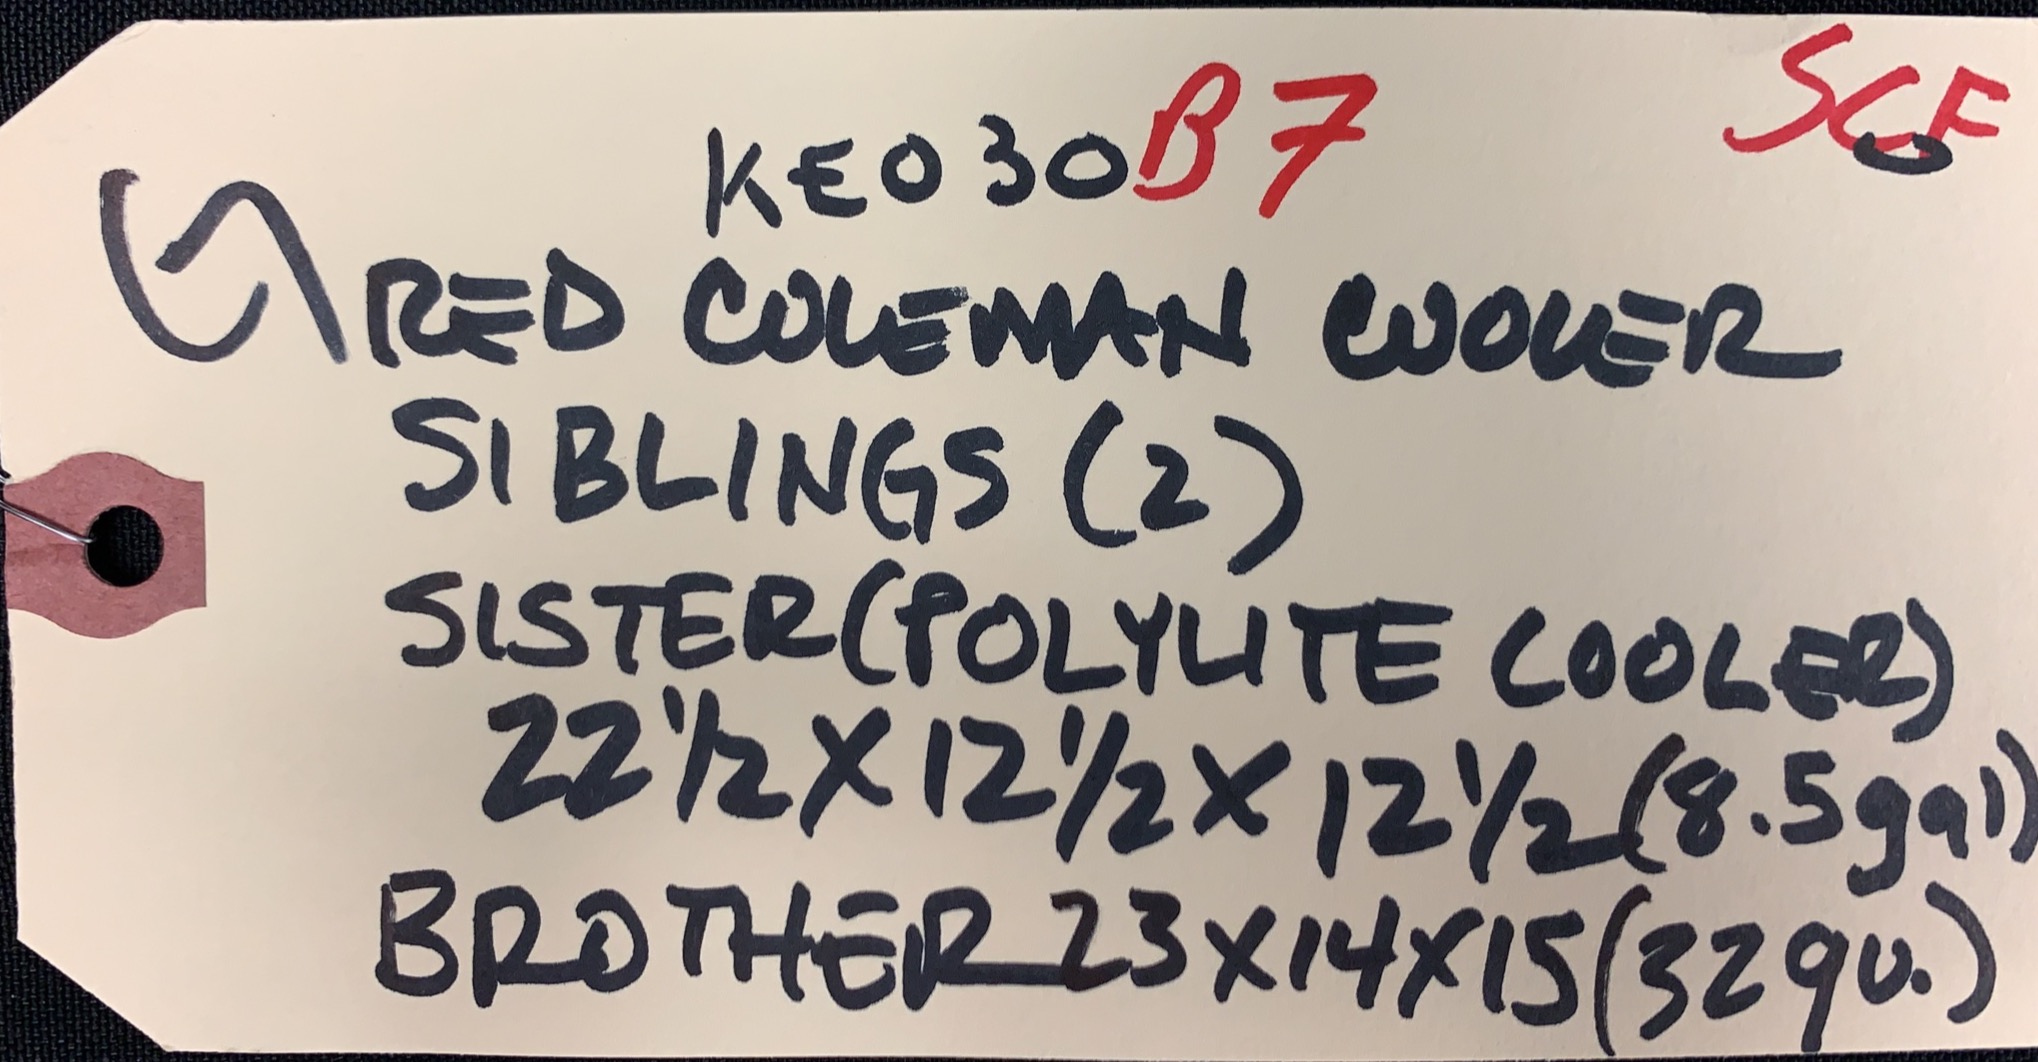 KEO30B7
SCF
RED COLEMAN COOLER
SIBLINGS (2)
SISTER (POLYLITE COOLER)
22 1/2 X 12 1/2 X 12 1/2 (8.5gal)
BROTHER 23X14X15 (32 qu.)